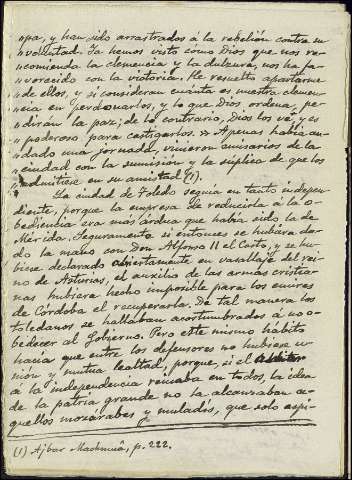 "spa, y han sido arrastrados á la rebelión contra su
"voluntad. Ya hemos visto como Dios que nos re-
"comienda la clemencia y la dulzura, nos ha fa-
"vorecido con la victoria. He resuelto apartarme
"de ellos, y si consideran cuánta es nuestra clemen-
"cia en perdonarlos, y lo que Dios ordena, pe-
"dirán la paz; de lo contrario, Dios los ve y es
"poderoso para castigarlos. » Apenas había an-
dado una jornada, vinieron emisarios de la
ciudad con la sumisión y la súplica de que los
admitiese en su amistad (1).
La ciudad de Toledo seguía en tanto indepen-
diente, porque la empresa de reducirla á la o-
bediencia era más árdua que había sido la de
Mérida. Seguramente si entonces se hubiera da-
do la mano con Don Alfonso II el Casto, y se hu-
biese declarado abiertamente en vasallaje del rei-
no de Asturias, el auxilio de las armas cristia-
nas hubiera hecho imposible para los emires
de Córdoba el recuperarla. De tal manera los
toledanos se hallaban acostumbrados á no o-
bedecer al Gobierno. Pero este mismo hábito
hacía que entre los defensores no hubiese u-
nión y mutua lealtad, porque, si el
á la independencia reinaba en todos, la idea
de la patria grande no la alcanzaban a-
quellos mozárabes y muladís, que solo aspi-
(1) Ajbar Machmuâ, p. 222.